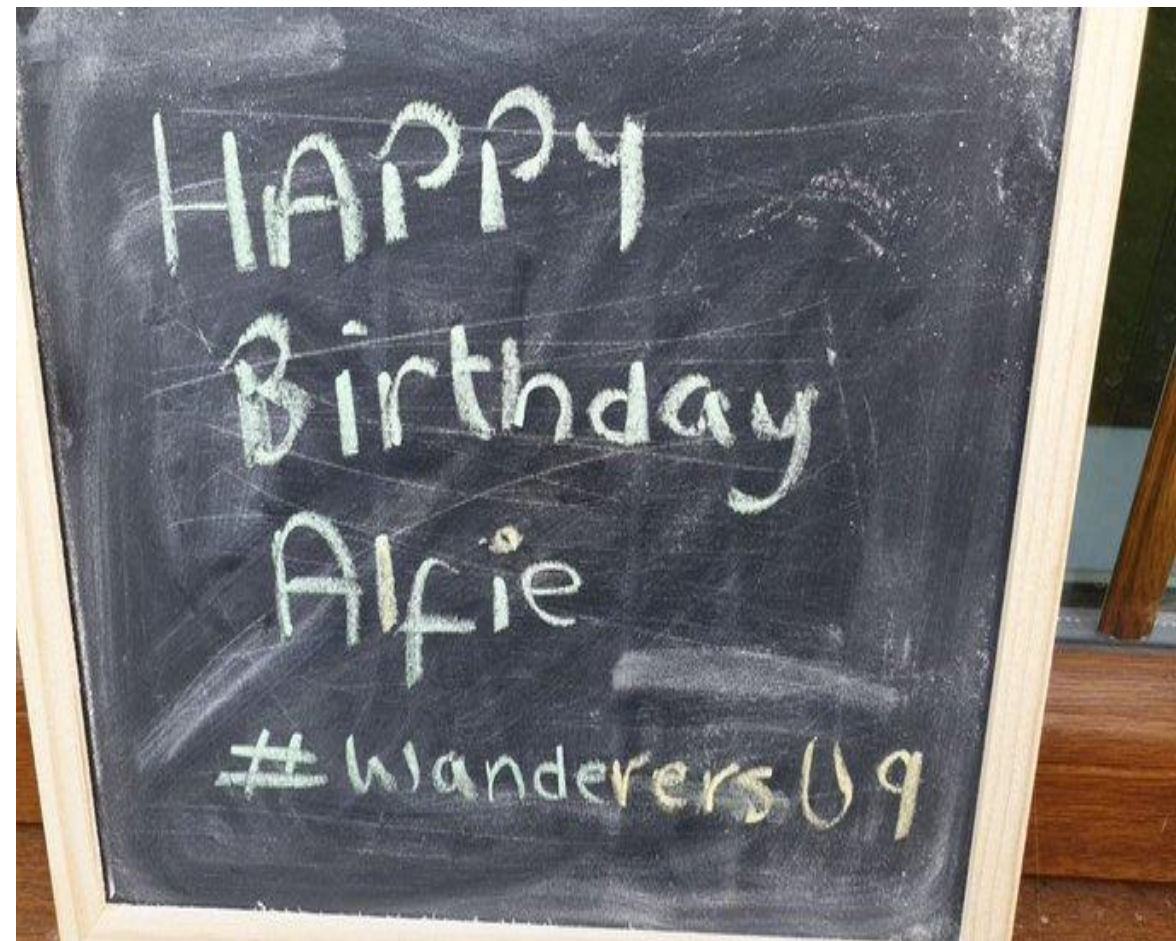 HAPPY
Birthday
Alfie
#WanderersU9